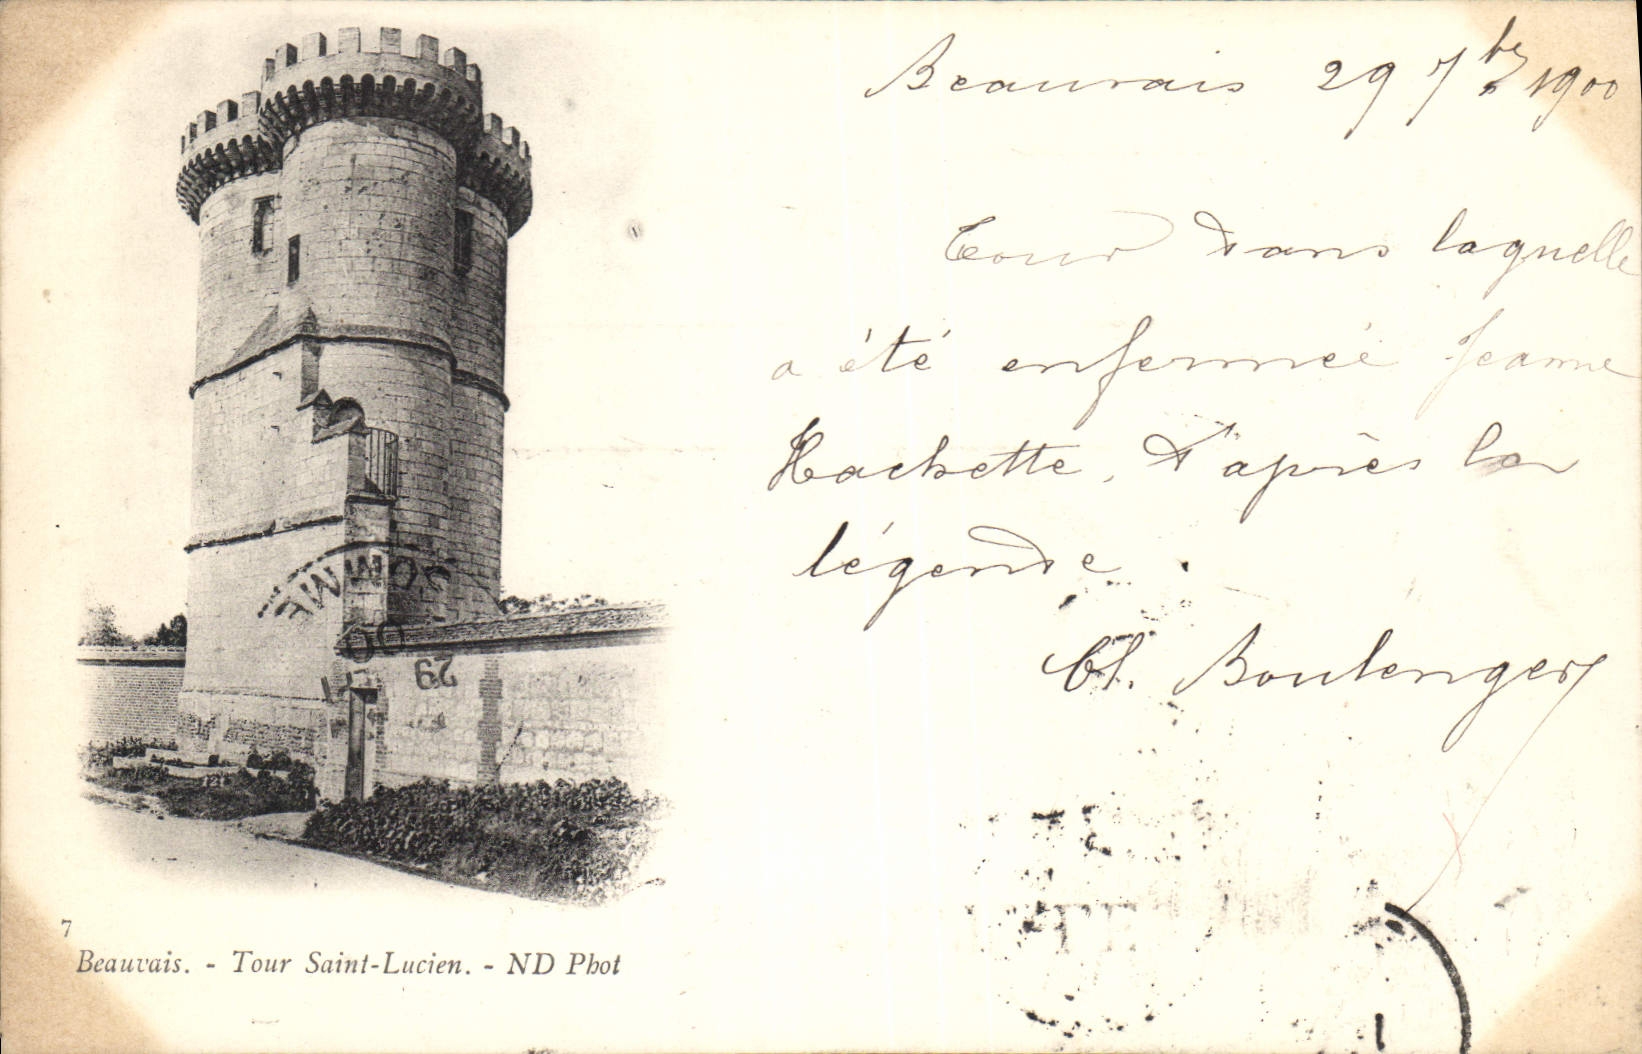 Beauvais 29 7bre 1900
Tour dans laquelle
a été enfermée Jeanne
Hachette, d'après la
légende.
Ch. Boulenger
29
7
Beauvais. - Tour Saint-Lucien. - ND Phot